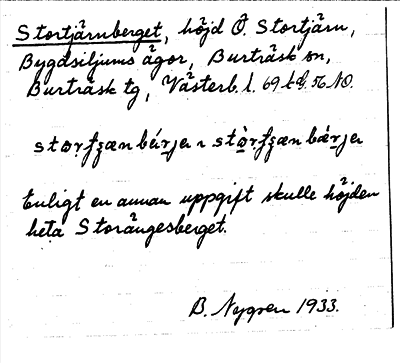 Stortjärnberget, höjd Ö. Stortjärn,
Bygdsiljums ägor, Burträsk sn,
Burträsk tg, Västerb. l. 69 kd. 56 NO.
Enligt en annan uppgift skulle höjden
heta Storängesberget.
B. Nygren 1933.